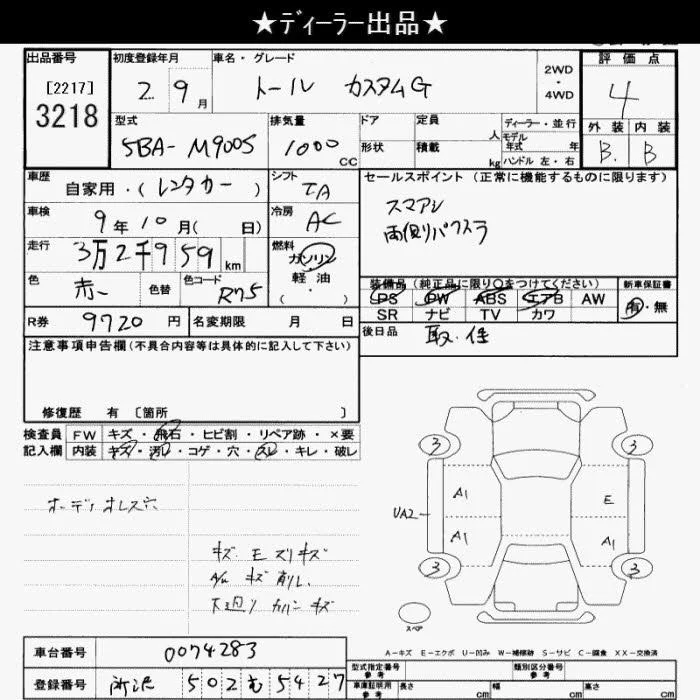 ★ディーラー出品★
出品番号 初度登録年月 車名・グレード 評価点
[2217] 2 9月 トール カスタムG 2WD・4WD 4
3218
型式 排気量 ドア 定員 人 ディーラー・並行 外装 内装
5BA-M900S 1000 CC 形状 積載 kg モデル年式 年 B B
ハンドル 左・右
車歴 自家用・(レンタカー) シフト IA セールスポイント(正常に機能するものに限ります)
車検 9年10月( 日) 冷房 AC スマアシ
走行 3万2千959km 燃料 ガソリン 両側パワスラ
軽油
( ・ )
色 赤 色替 色コード R75 装備品(純正品に限り○をつけてください) 新車保証書
PS PW ABS エアB AW 有・無
SR ナビ TV カワ
R券 9720円 名変期限 月 日 後日品 取・保
注意事項申告欄(不具合内容等は具体的に記入して下さい)
修復歴 有 〔箇所 〕
検査員 FW キズ・飛石・ヒビ割・リペア跡・×要
記入欄 内装 キズ・汚レ・コゲ・穴・スレ・キレ・破レ
3 3
A1 E
オーディオレス穴 UA2
A1 A1
キズ E ズリキズ
A/W キズ 削レ 3 3
下廻り カバー キズ
スペア
車台番号 0074283
A-キズ E-エクボ U-凹み W-補修跡 S-サビ C-腐食 XX-交換済
登録番号 所沢 502 も 5427
型式指定番号 参考 類別区分番号 参考
車庫証明用 参考 長さ cm 幅 cm 高さ cm